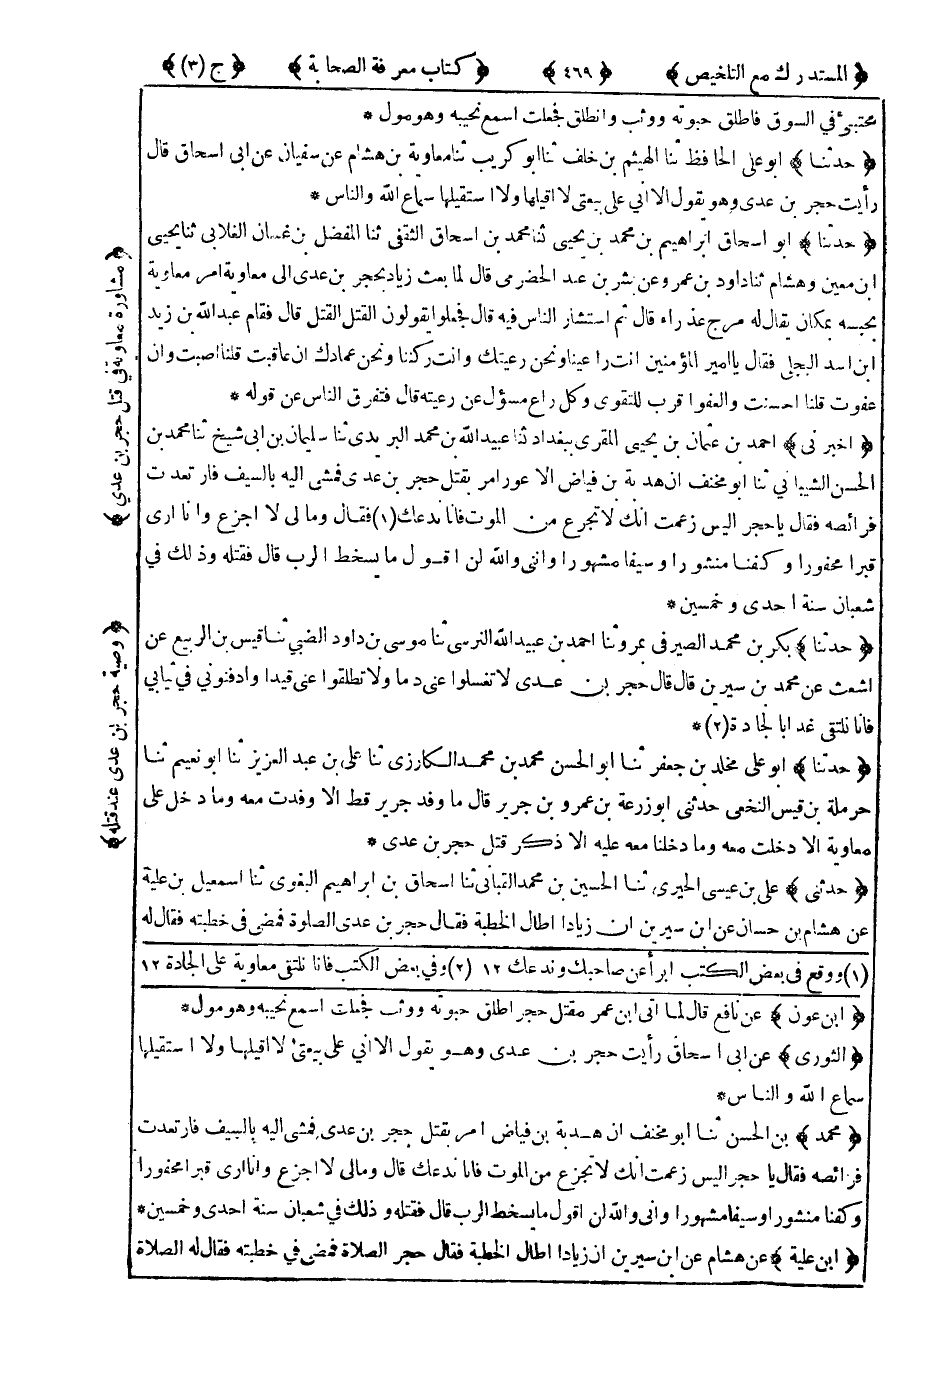 ﴿ المستدرك مع التلخيص ﴾ ﴿ ٤٦٩ ﴾ ﴿ كتاب معرفة الصحابة ﴾ ﴿ ج (٣) ﴾
محتبئ في السوق فاطلق حبوته ووثب وانطلق فجعلت اسمع نحيبه وهو مول *
﴿ حدثنا ﴾ ابو على الحافظ ثنا الهيثم بن خلف ثنا ابو كريب ثنا معاوية بن هشام عن سفيان عن ابى اسحاق قال
رأيت حجر بن عدى وهو يقول الا اني على بيعتى لا اقيلها ولا استقيلها سماع الله والناس *
﴿ حدثنا ﴾ ابو اسحاق ابراهيم بن محمد بن يحيى ثنا محمد بن اسحاق الثقفى ثنا المفضل بن غسان الغلابى ثنا يحيى
ابن معين وهشام ثنا داود بن عمرو عن بشر بن عبد الحضرمى قال لما بعث زياد بحجر بن عدى الى معاوية امر معاوية
بحبسه بمكان يقال له مرج عذراء قال ثم استشار الناس فيه قال فجعلوا يقولون القتل القتل قال فقام عبد الله بن زيد
ابن اسد البجلى فقال يا امير المؤمنين انت راعينا ونحن رعيتك وانت ركننا ونحن عمادك ان عاقبت قلنا اصبت وان
عفوت قلنا احسنت والعفو اقرب للتقوى وكل راع مسؤل عن رعيته قال فتفرق الناس عن قوله *
﴿ اخبرنى ﴾ احمد بن عثمان بن يحيى المقرى ببغداد ثنا عبيد الله بن محمد البريدى ثنا سليمان بن ابى شيخ ثنا محمد بن
الحسن الشيبانى ثنا ابو مخنف ان هدبة بن فياض الاعور امر بقتل حجر بن عدى فمشى اليه بالسيف فارتعدت
فرائصه فقال يا حجر اليس زعمت انك لا تجزع من الموت فانا ندعك (١) فقال وما لى لا اجزع وانا ارى
قبرا محفورا وكفنا منشورا وسيفا مشهورا واننى والله لن اقول ما يسخط الرب قال فقتله وذلك في
شعبان سنة احدى وخمسين *
﴿ حدثنا ﴾ بكر بن محمد الصيرفى بمرو ثنا احمد بن عبيد الله النرسى ثنا موسى بن داود الضبي ثنا قيس بن الربيع عن
اشعث عن محمد بن سيرين قال قال حجر بن عدى لا تغسلوا عنى دما ولا تطلقوا عنى قيدا وادفنوني في ثيابي
فانا نلتقى غدا بالجادة (٢) *
﴿ حدثنا ﴾ ابو على مخلد بن جعفر ثنا ابو الحسن محمد بن محمد الكارزى ثنا على بن عبد العزيز ثنا ابو نعيم ثنا
حرملة بن قيس النخعى حدثنى ابو زرعة بن عمرو بن جرير قال ما وفد جرير قط الا وفدت معه وما دخل على
معاوية الا دخلت معه وما دخلنا معه عليه الا ذكر قتل حجر بن عدى *
﴿ حدثنى ﴾ على بن عيسى الحيرى ثنا الحسين بن محمد القبانى ثنا اسحاق بن ابراهيم البغوى ثنا اسمعيل بن علية
عن هشام بن حسان عن ابن سيرين ان زيادا اطال الخطبة فقال حجر بن عدى الصلوة فمضى فى خطبته فقال له
(١) ووقع فى بعض الكتب ابرأ عن صاحبك وندعك ١٢ (٢) وفي بعض الكتب فانا نلتقى معاوية على الجادة ١٢
﴿ ابن عون ﴾ عن نافع قال لما اتى ابن عمر مقتل حجر اطلق حبوته ووثب فجعلت اسمع نحيبه وهو مول *
﴿ الثورى ﴾ عن ابى اسحاق رأيت حجر بن عدى وهو يقول الا اني على بيعتى لا اقيلها ولا استقيلها
سماع الله والناس *
﴿ محمد ﴾ بن الحسن ثنا ابو مخنف ان هدبة بن فياض امر بقتل حجر بن عدى فمشى اليه بالسيف فارتعدت
فرائصه فقال يا حجر اليس زعمت انك لا تجزع من الموت فانا ندعك قال ومالى لا اجزع وانا ارى قبرا محفورا
وكفنا منشورا وسيفا مشهورا وانى والله لن اقول ما يسخط الرب قال فقتله وذلك في شعبان سنة احدى وخمسين *
﴿ ابن علية ﴾ عن هشام عن ابن سيرين ان زيادا اطال الخطبة فقال حجر الصلاة فمضى في خطبته فقال له الصلاة
﴿ مشاورة معاوية في قتل حجر بن عدي ﴾
﴿ وصية حجر بن عدى عند قتله ﴾